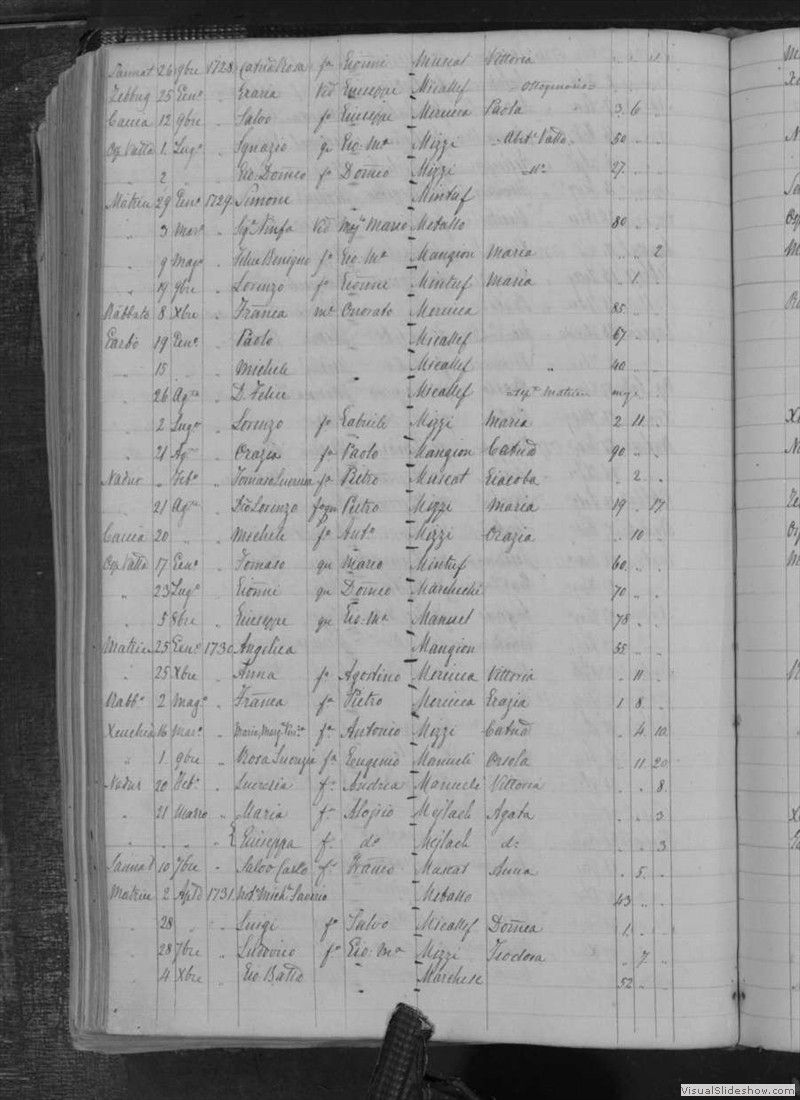 Sannat 26 9bre 1728 Catnd Rosa fa Gionni Muscat Vittoria " " 1
Zebbug 25 Gen° " Grazia Ved Giuseppe Micallef Ottogenaria
Caccia 12 9bre " Salvo f° Giuseppe Mercieca Paola 3 6 "
Osp. Vatta 1 Lug° " Ignazio qu Gio: Ma Mizzi Abite Vatta 50 " "
" 2 Gio: Domco f° Domco Mizzi 27 " "
Matrice 29 Gen° 1729 Simone " Mintuf " " "
" 3 Mar° " Ved Mario Metallo 80 " "
" 9 Mag° " Felice Benigno f° Gio: Ma Mangion Maria " " 2
" 19 9bre " Lorenzo f° Gionni Mintuf Maria " 1 "
Rabbato 8 Xbre " Franca me Onorato Mercieca 85 " "
Garbo 19 Gen° " Paolo " Micallef 67 " "
" 15 " " Michele " Micallef " 40 " "
" 26 Ag° " D. Felice Micallef Matrice
" 2 Lug° " Lorenzo f° Gabriele Mizzi Maria 2 11 "
" 21 Ag° " Grazia fa Paolo Mangion Catnd 90 " "
Nadur " Feb° " Tommaso f° Pietro Muscat Giacoba " 2 "
" 21 Ag° " Lorenzo Pietro Mizzi Maria 19 " 17
Caccia 20 " " Michele f° Ant° Mizzi Grazia " 10 "
Osp. Vatta 17 Gen° " Tomaso qu Mario Mintuf 60 " "
" 23 Lug° " Gionni qu Domco Marchichi 70 " "
" 5 8bre " Giuseppe qu Gio: Ma Manuel 78 " "
Matrice 25 Gen° 1730 Angelica Mangion 55 " "
" 25 Xbre " Anna fa Agostino Mercieca Vittoria " 11 "
Rabb° 2 Mag° " Franca fa Pietro Mercieca Grazia 1 8 "
Xeuchia 16 Mar° " Maria fa Antonio Mizzi Catnd " 4 10
" 1 9bre " Rosa fa Eugenio Manueli Orsola " 11 20
Nadur 20 Feb° " Lucrezia f. Andrea Manueli Vittoria " " 8
" 21 Marzo " Maria f. Aloisio Mejlach Agata " " 3
" " " " E Giuseppa f. d° Mejlach d° " " 3
Sannat 10 7bre " Salvo Carlo f° Franco Muscat Anna " 5 "
Matrice 2 Aple 1731 Metallo 43 " "
" 28 " " Luigi f° Salvo Micallef Domca 1 " "
" 28 7bre " Ludovico f° Gio: Ma Mizzi Teodora " 7 "
" 4 Xbre " Gio Batta " Marchese 52 " "
VisualSlideshow.com